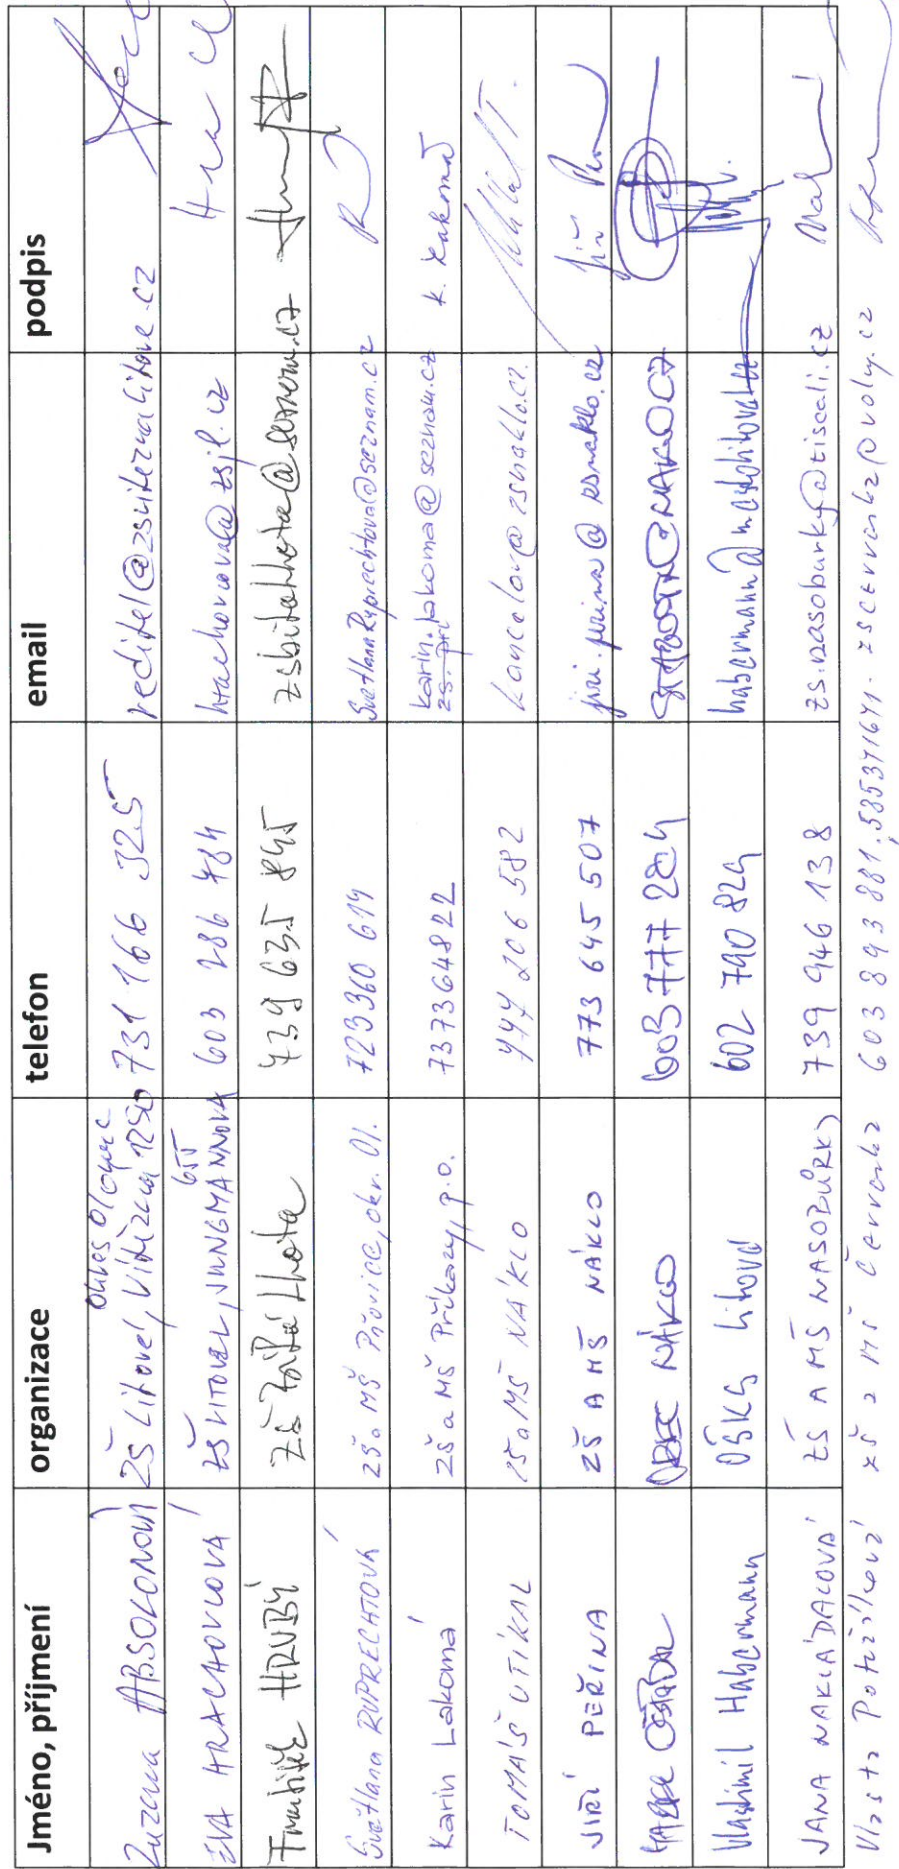 Jméno, příjmení organizace telefon email podpis
okres Olomouc
Zuzana ABSOLONOVÁ ZŠ Litovel, Vítězná 1250 731 166 325 reditel@zsviteznalitovel.cz
655
EVA HRACHOVCOVÁ ZŠ LITOVEL, JUNGMANNOVA 603 286 784 hrachovcova@zsjl.cz
František HRUBÝ ZŠ Bílá Lhota 739 635 845 zsbilalhota@seznam.cz
Světlana RUPRECHTOVÁ ZŠ a MŠ Pňovice, okr. Ol. 723 360 619 SvetlanaRuprechtova@seznam.cz
Karin Lakomá ZŠ a MŠ Příkazy, p.o. 737364822 karin.lakoma@seznam.cz K. Lakomá
zs.pri
TOMÁŠ UTÍKAL ZŠ a MŠ NÁKLO 777 206 582 @zsnaklo.cz
JIŘÍ PEŘINA ZŠ A MŠ NÁKLO 773 645 507 jiri.perina@zsnaklo.cz Jiří
OBEC NÁKLO 603 777 284
Vlastimil Habermann 602 790 824
JANA NAKLÁDALOVÁ ZŠ A MŠ NASOBŮRKY 739 946 138 zs.nasoburky@tiscali.cz
Vlasta Potužníková ZŠ a MŠ Červenka 603 893 881, 585341641 - zscervenka@volny.cz